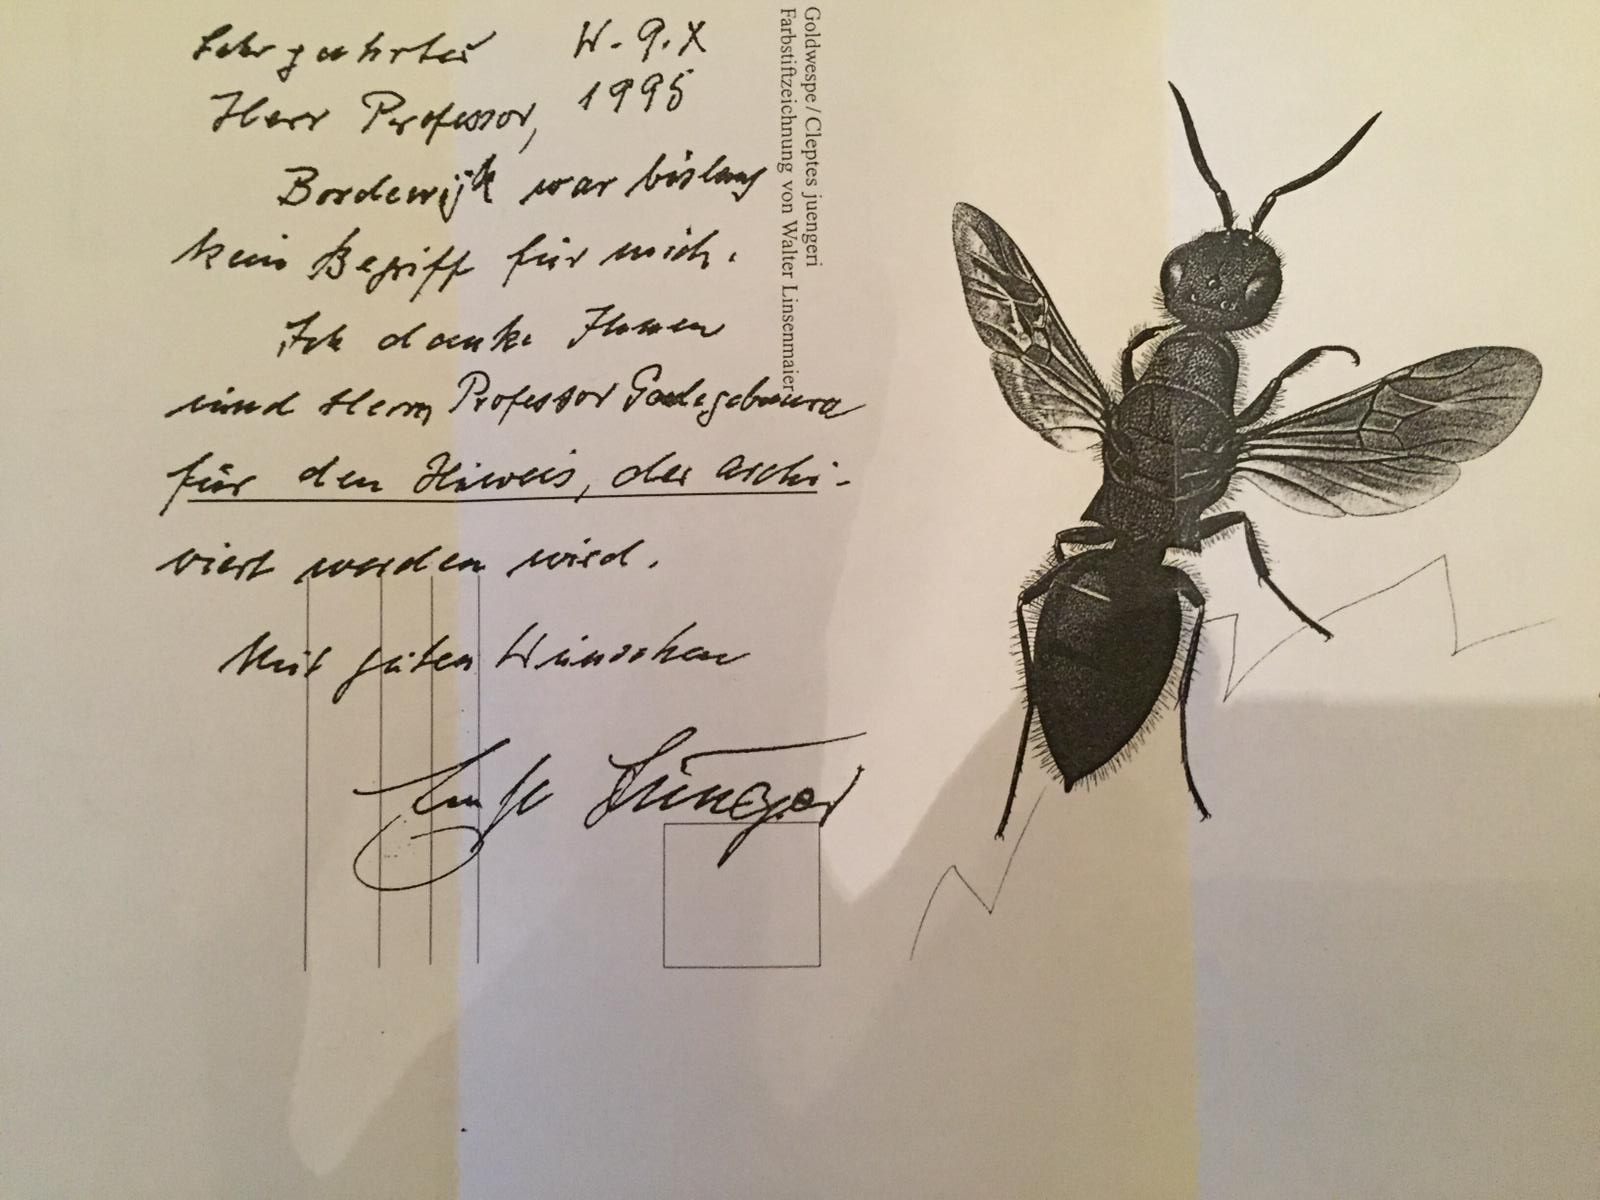 Sehr geehrter W. 9.X
Herr Professor, 1995
Bordewijk war bislang
kein Begriff für mich.
Ich danke Ihnen
und Herrn Professor
für den Hinweis, der archi-
viert werden wird.
Mit guten Wünschen
Ernst Jünger
Goldwespe/Cleptes juengeri
Farbstiftzeichnung von Walter Linsenmaier